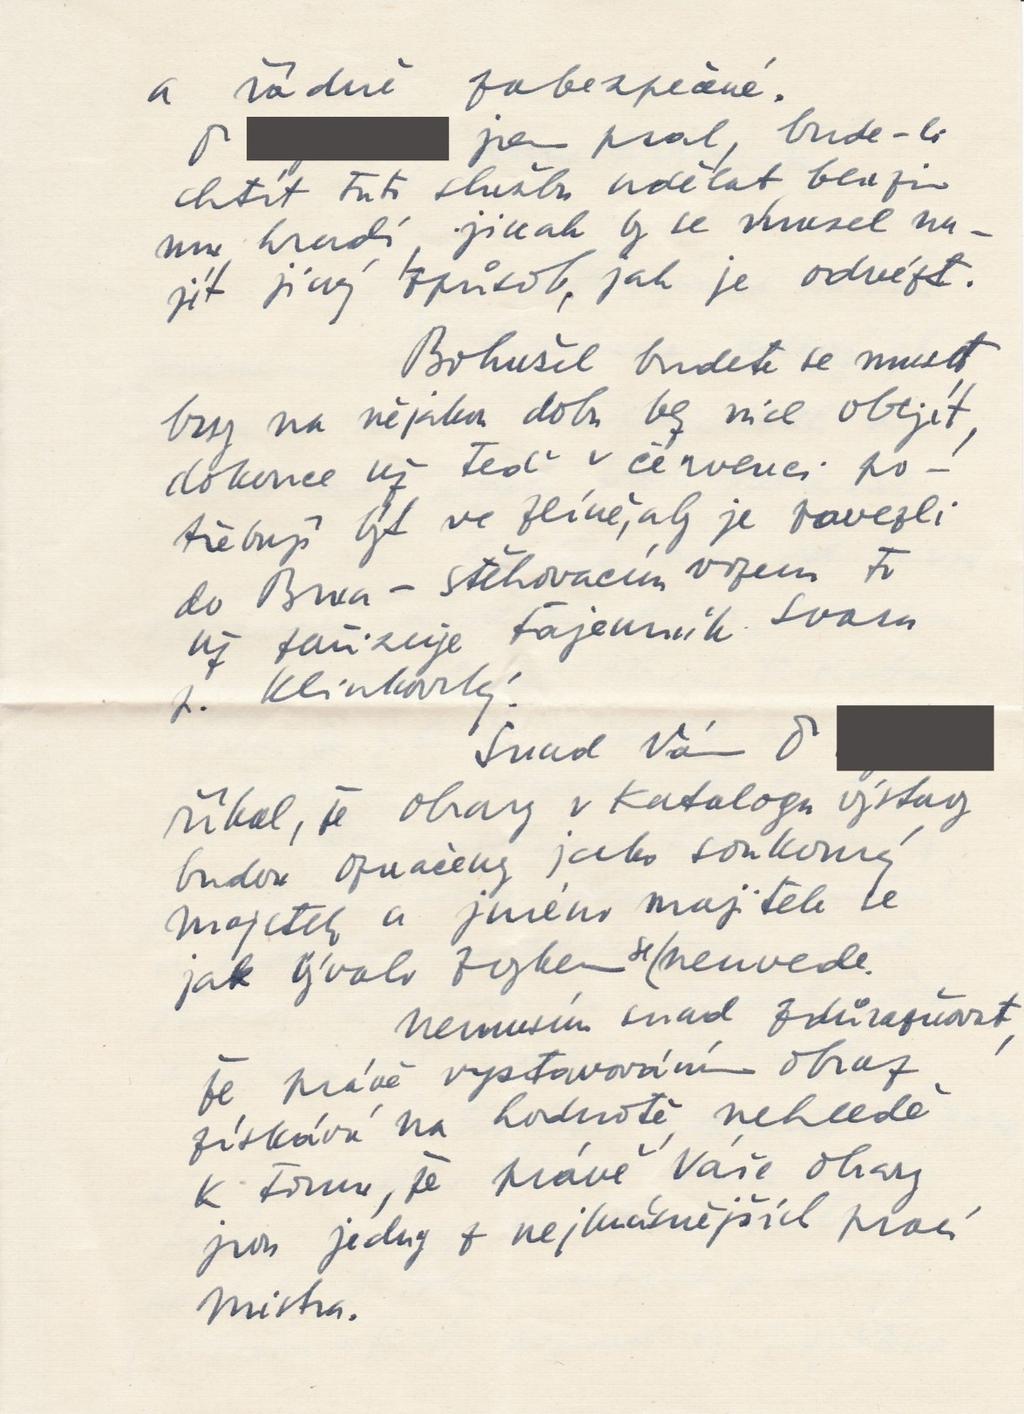 a řádně zabezpečené.
Dr jsem psal, bude-li
chtít tuto službu udělat benzin
mu hradí, jinak by se musel na-
jít jiný způsob, jak je odvézt.
Bohužel budete se muset
brzy na nějakou dobu bez nich obejít,
dokonce už teď v červenci po-
třebuji být ve Zlíně, aby je zavezli
do Brna - stěhovacím vozem to
už zařizuje tajemník Svazu
p. Klinkovský.
Snad Vám Dr
říkal, že obrazy v katalogu výstavy
budou označeny jako soukromý
majetek a jméno majitele se
jak bývalo zvykem se/neuvede.
Nemusím snad zdůrazňovat,
že právě vystavováním obraz
získává na hodnotě, nehledě
k tomu, že právě Vaše obrazy
jsou jedny z nejkrásnějších prací
Mistra.